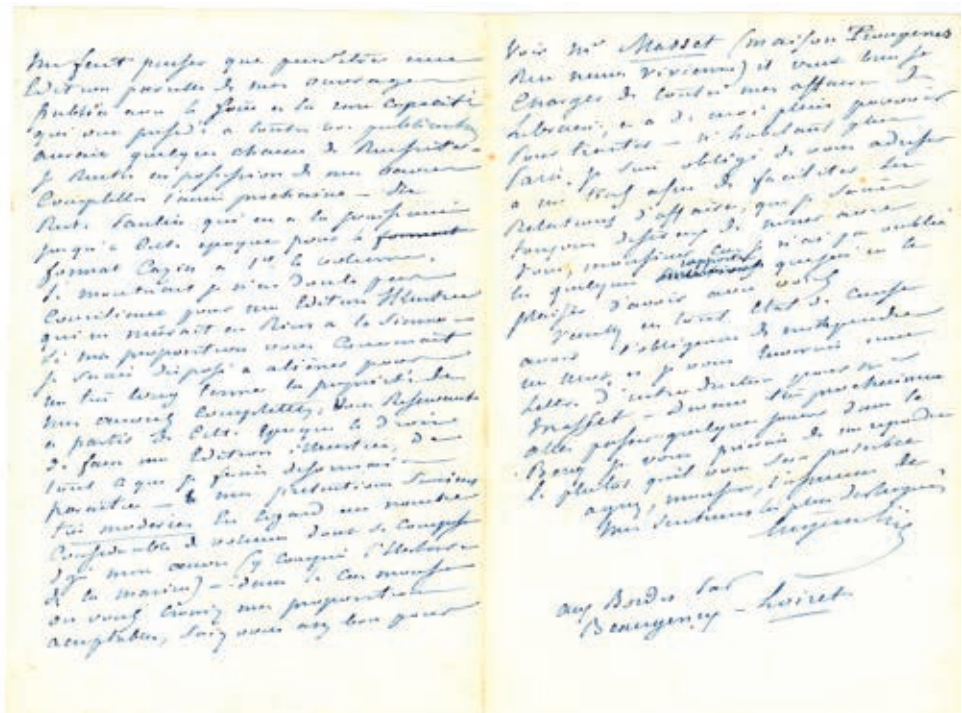 me fait penser que peut être une
Edition pareille de mes ouvrages
publiée avec le soin et la rare capacité
qui vous président à toutes vos publications
aurait quelque chance de Réussite –
Je Rentre en possession de mes œuvres
complettes l'année prochaine –
Paulin qui en a la jouissance
jusqu'à cette époque pour le format
format Cazin a 1f le volume.
considérence pour une Edition Illustrée
qui en Rien a la Sienne –
Si ma proposition vous convenait
je serais disposé a aliéner pour
un très long terme la propriété de
mes œuvres complettes, vous Réservant
a partir de cette époque le droit
de faire une Edition illustrée, de
tout ce que je ferais désormais
paraître – mes prétentions seraient
très modérées En Egard au nombre
considérable de volumes dont se compose
déjà mon œuvre (y compris l'histoire
de la marine) – dans le cas monsieur
ou vous croiriez ma proposition
acceptable, soyez assez bon pour
Voir Mr Masset (maison
Rue neuve Vivienne) il veut bien se
charger de toutes mes affaires de
Librairie, et a de moi plein pouvoir
Pour traiter – n'habitant plus
Paris. Je suis obligé de vous adresser
a un tiers afin de faciliter les
Relations d'affaires, que je serais
toujours désireux de nouer avec
vous, monsieur, car je n'ai pas oublié
les quelques rapports que j'ai eu le
plaisir d'avoir avec vous
Veuillez en tout Etat de cause
avoir l'obligeance de me répondre
un mot, et je vous Enverrais une
Lettre d'introduction pour Mr
Masset – Devant très prochainement
aller passer quelques jours dans le
Berry je vous prierais de me répondre
le plutôt qu'il vous sera possible
agréez, monsieur, l'assurance de
mes sentimens les plus distingués
Eugène Süe
aux Bordes par
Beaugency – Loiret